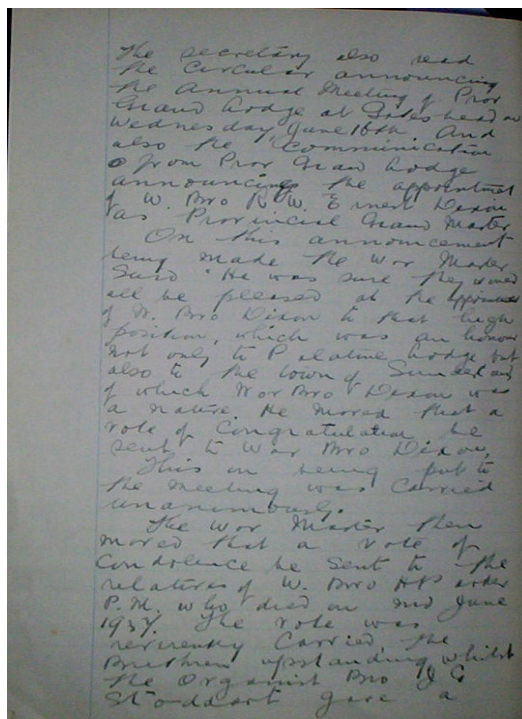 The secretary also read
the circular announcing
the annual Meeting of Prov
Grand Lodge at Gateshead on
Wednesday June 16th. And
also the communication
from Prov Grand Lodge
announcing the appointment
of W. Bro R W. Ernest Dixon
as Provincial Grand Master
On this announcement
being made the Wor Master
Said "He was sure they would
all be pleased at the appointment
of W. Bro Dixon to that high
position, which was an honour
not only to Palatine Lodge but
also to the town of Sunderland
of which Wor Bro Dixon was
a native. He moved that a
vote of Congratulation be
sent to Wor Bro Dixon,
This on being put to
the meeting was carried
unanimously.
The Wor Master then
moved that a vote of
Condolence be sent to the
relatives of W. Bro
P.M. who died on June
1937. The vote was
reverently Carried, the
Brethren upstanding whilst
the Organist Bro J G
Stoddart gave a